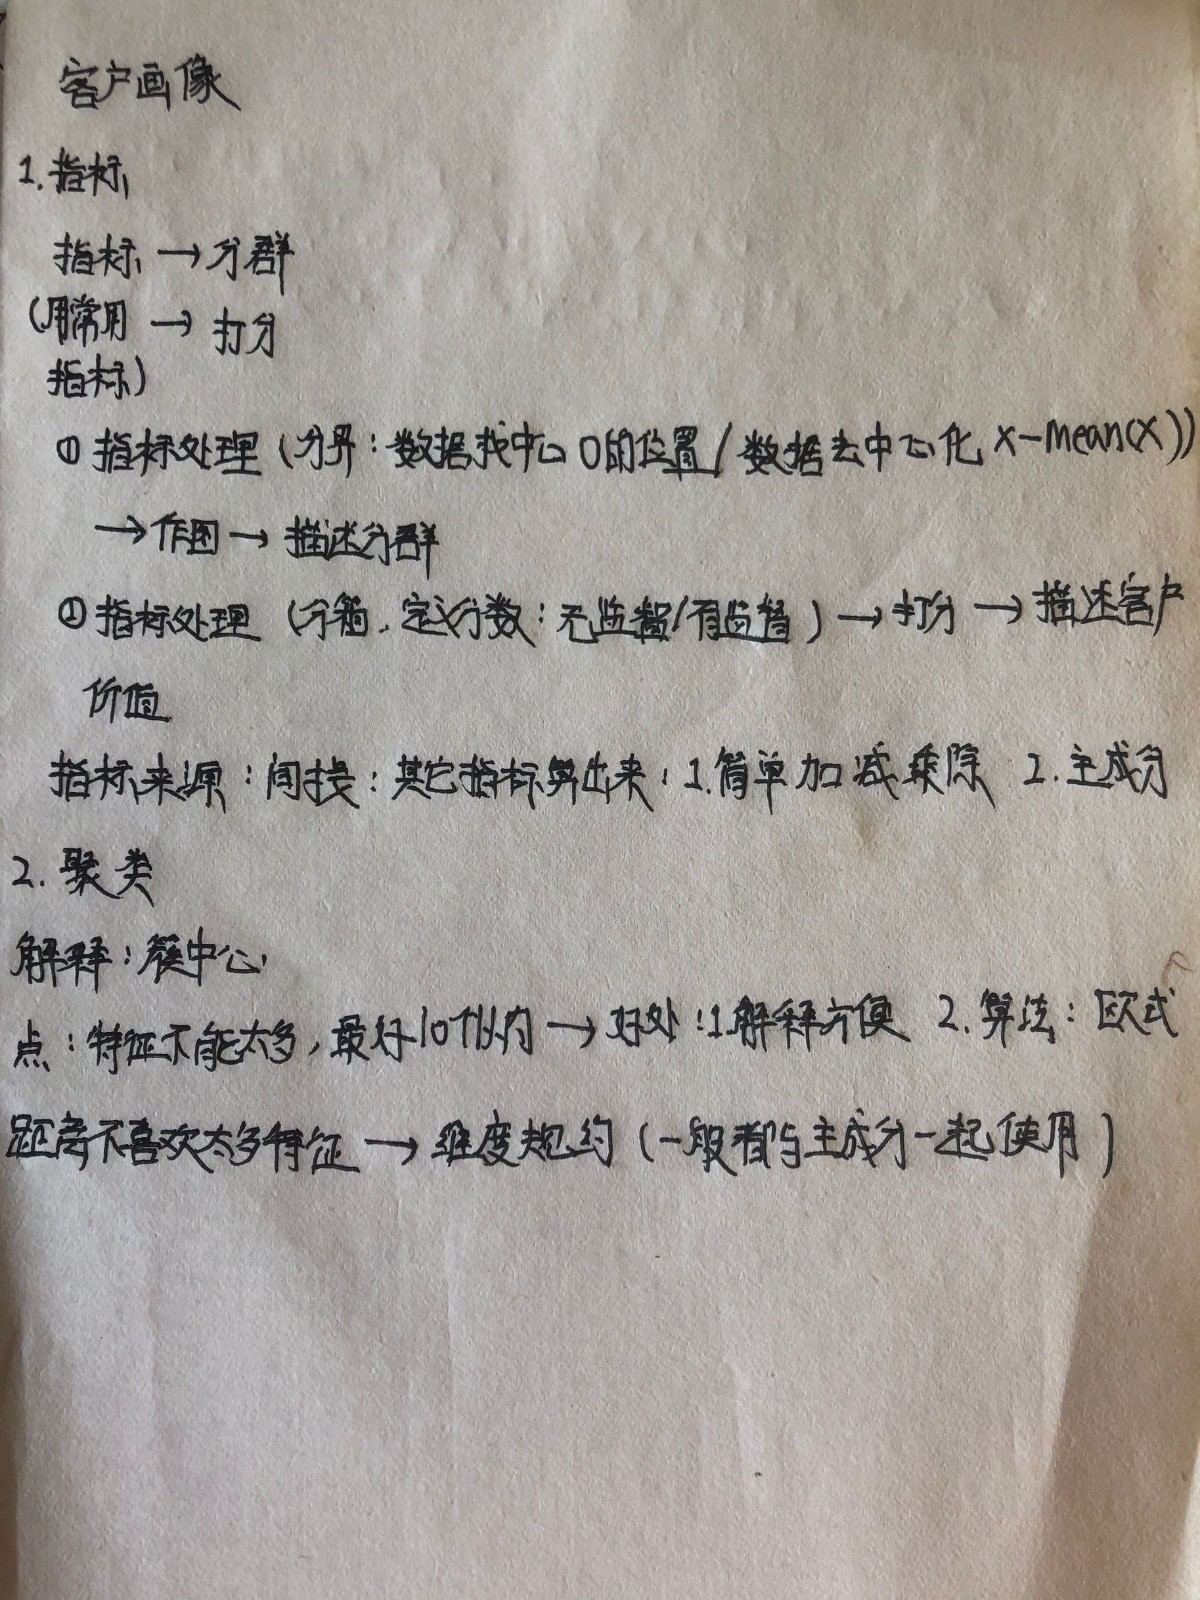 客户画像
1. 指标
指标 → 分群
(用常用 → 打分
指标)
① 指标处理 (分界: 数据找中心 0的位置/数据去中心化 x-mean(x))
→ 作图 → 描述分群
② 指标处理 (分箱、定义分数: 无监督/有监督) → 打分 → 描述客户
价值
指标来源: 间接: 其它指标算出来: 1.简单加减乘除 2.主成分
2. 聚类
解释: 簇中心
点: 特征不能太多, 最好10个以内 → 好处: 1.解释方便 2. 算法: 欧式
距离不喜欢太多特征 → 维度规约 (一般都与主成分一起使用)